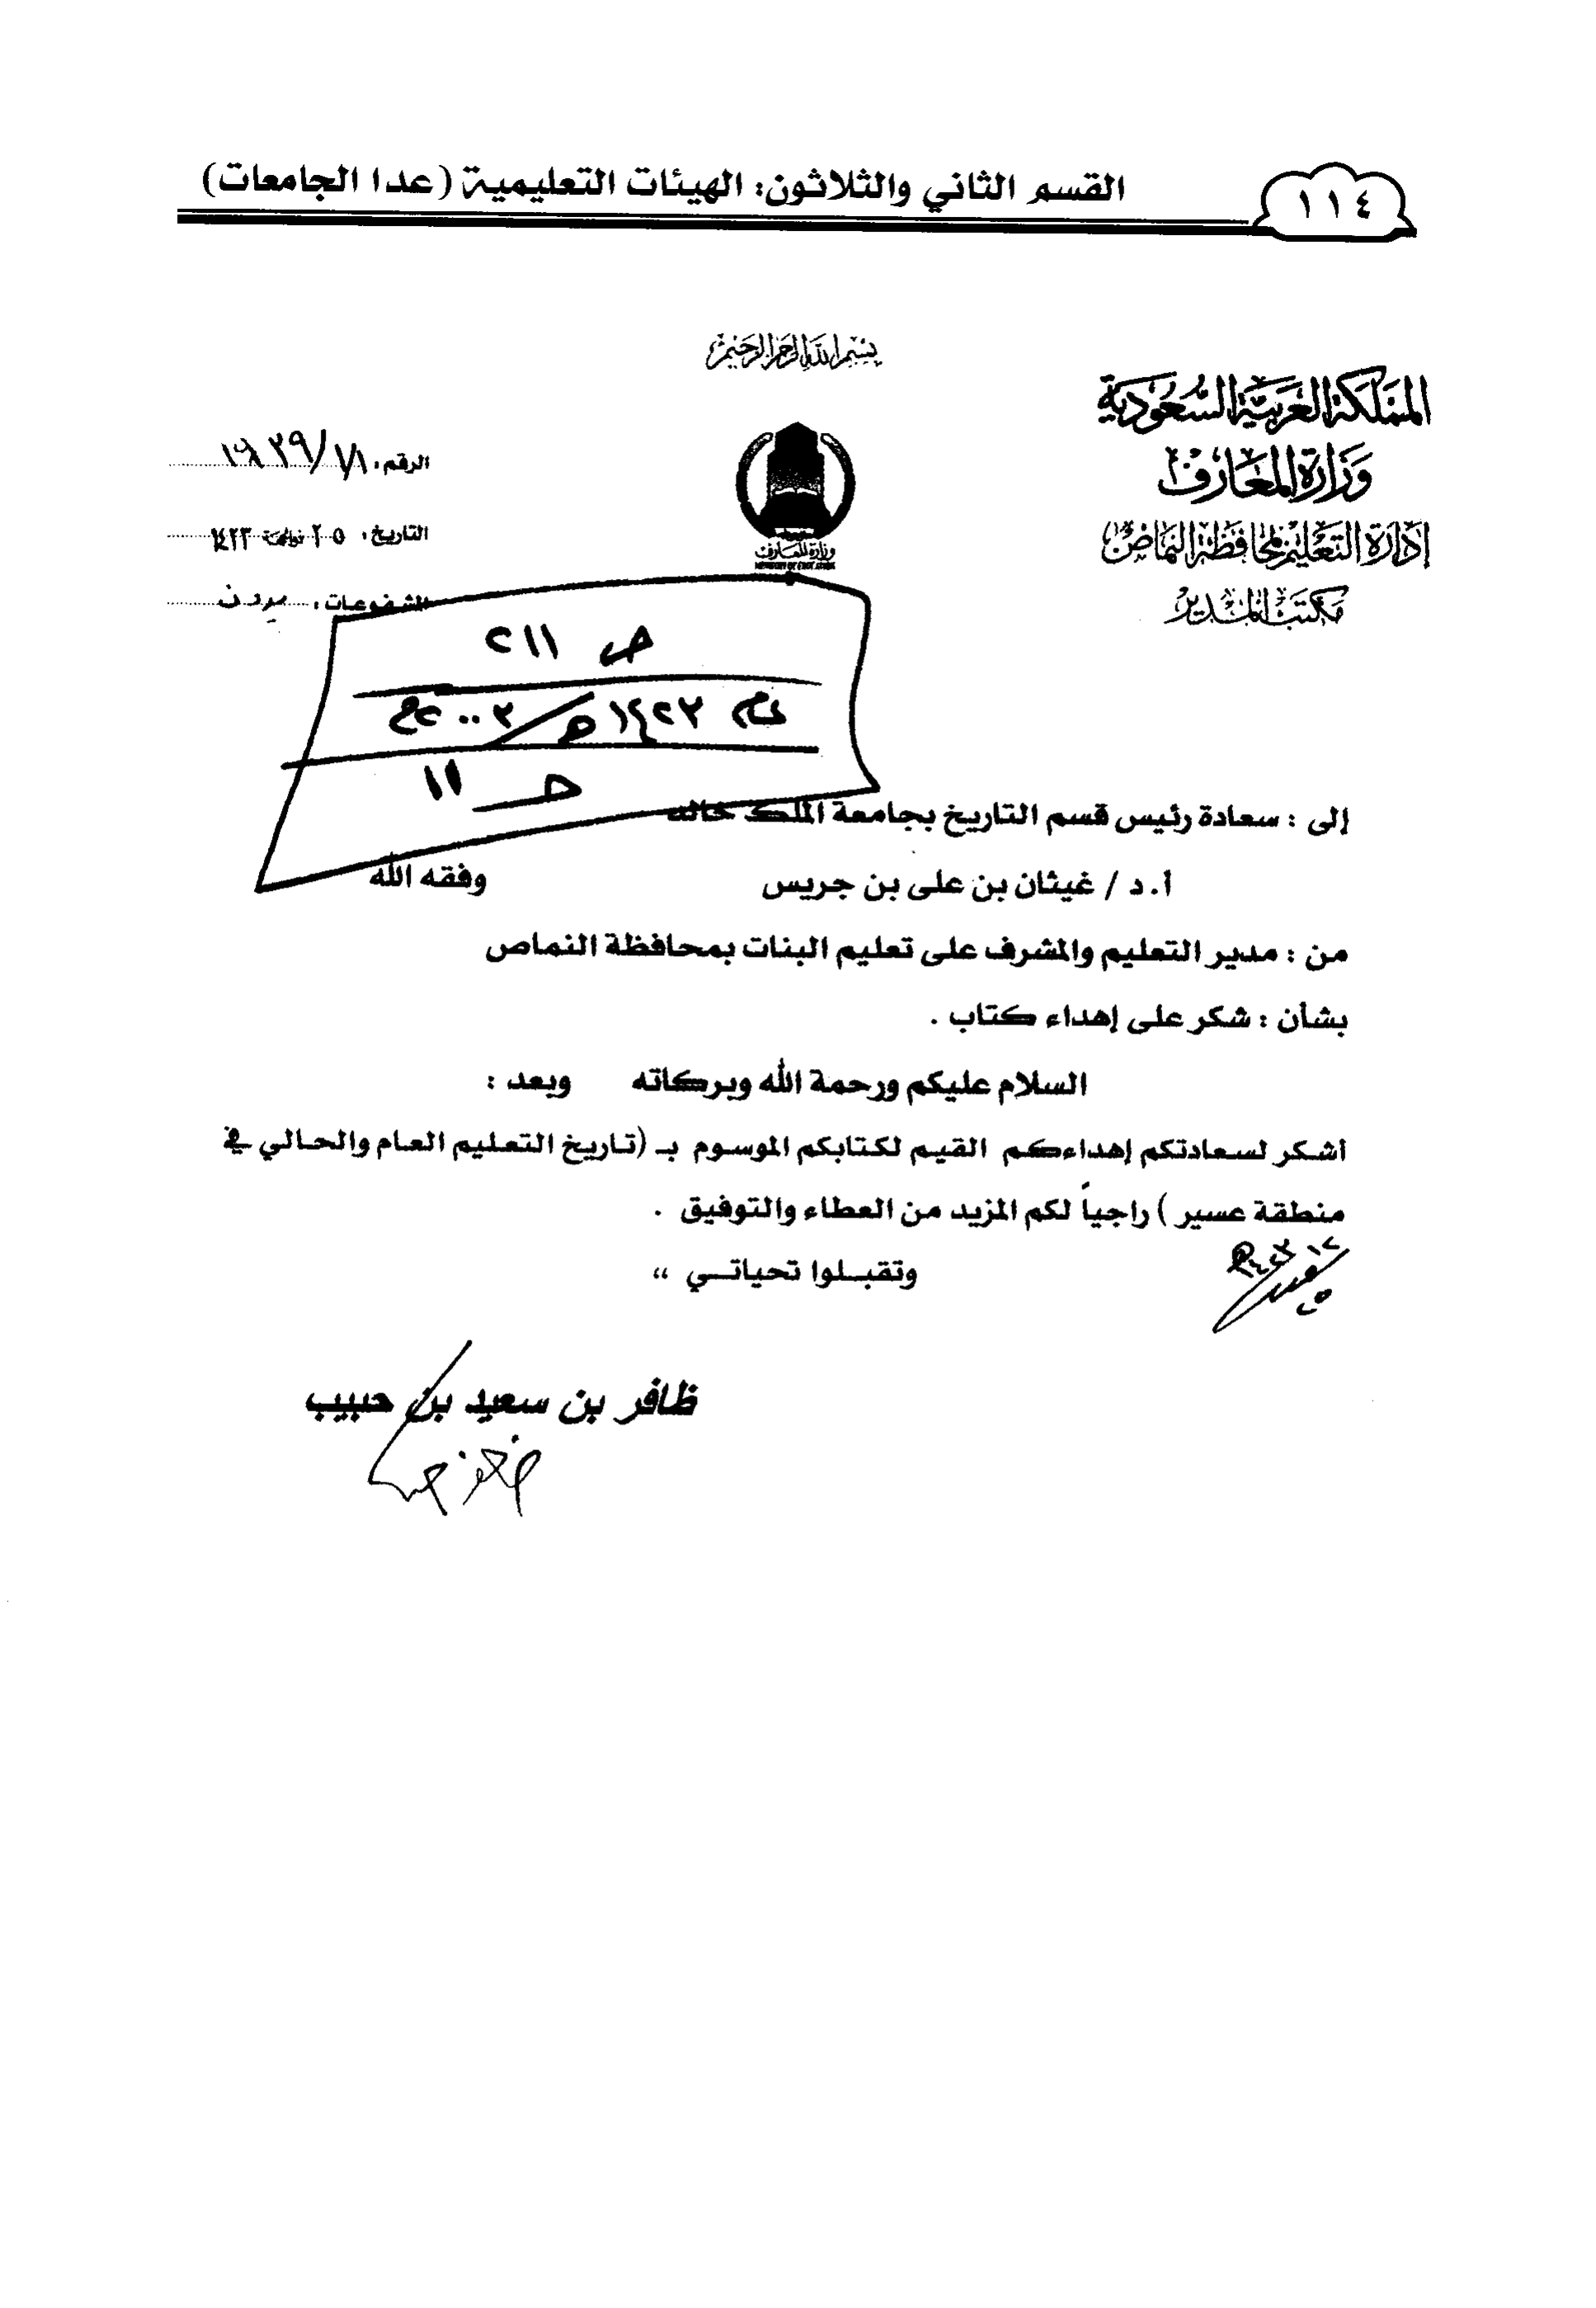 القسم الثاني والثلاثون: الهيئات التعليمية (عدا الجامعات)
١١٤
بسم الله الرحمن الرحيم
المملكة العربية السعودية
وزارة المعارف
إدارة التعليم بمحافظة النماص
مكتب المدير
وزارة المعارف
MINISTRY OF EDUCATION
الرقم:
التاريخ: ٢٥ ١٤٢٣
المشفوعات: بدون
ص ٢١١
عام ١٤٢٣هـ/٢٠٠٣م
حـ ١١
إلى : سعادة رئيس قسم التاريخ بجامعة الملك خالد
أ.د / غيثان بن على بن جريس وفقه الله
من : مدير التعليم والمشرف على تعليم البنات بمحافظة النماص
بشأن : شكر على إهداء كتاب .
السلام عليكم ورحمة الله وبركاته وبعد :
أشكر لسعادتكم إهداءكم القيم لكتابكم الموسوم بـ (تاريخ التعليم العام والحالي في
منطقة عسير ) راجياً لكم المزيد من العطاء والتوفيق .
وتقبلوا تحياتي ،،
ظافر بن سعيد بن حبيب